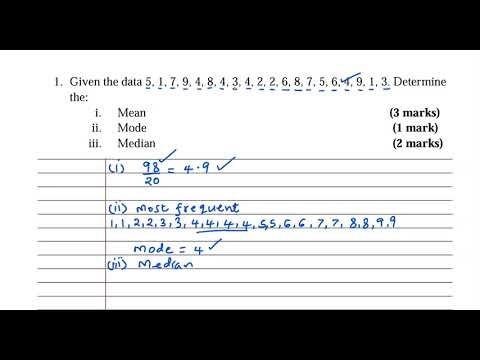 1. Given the data 5, 1, 7, 9, 4, 8, 4, 3, 4, 2, 2, 6, 8, 7, 5, 6, 4, 9, 1, 3. Determine
the:
i. Mean (3 marks)
ii. Mode (1 mark)
iii. Median (2 marks)
(i) 98/20 = 4.9
(ii) most frequent
1,1,2,2,3,3,4,4,4,4,5,5,6,6,7,7,8,8,9,9
mode = 4
(iii) Median